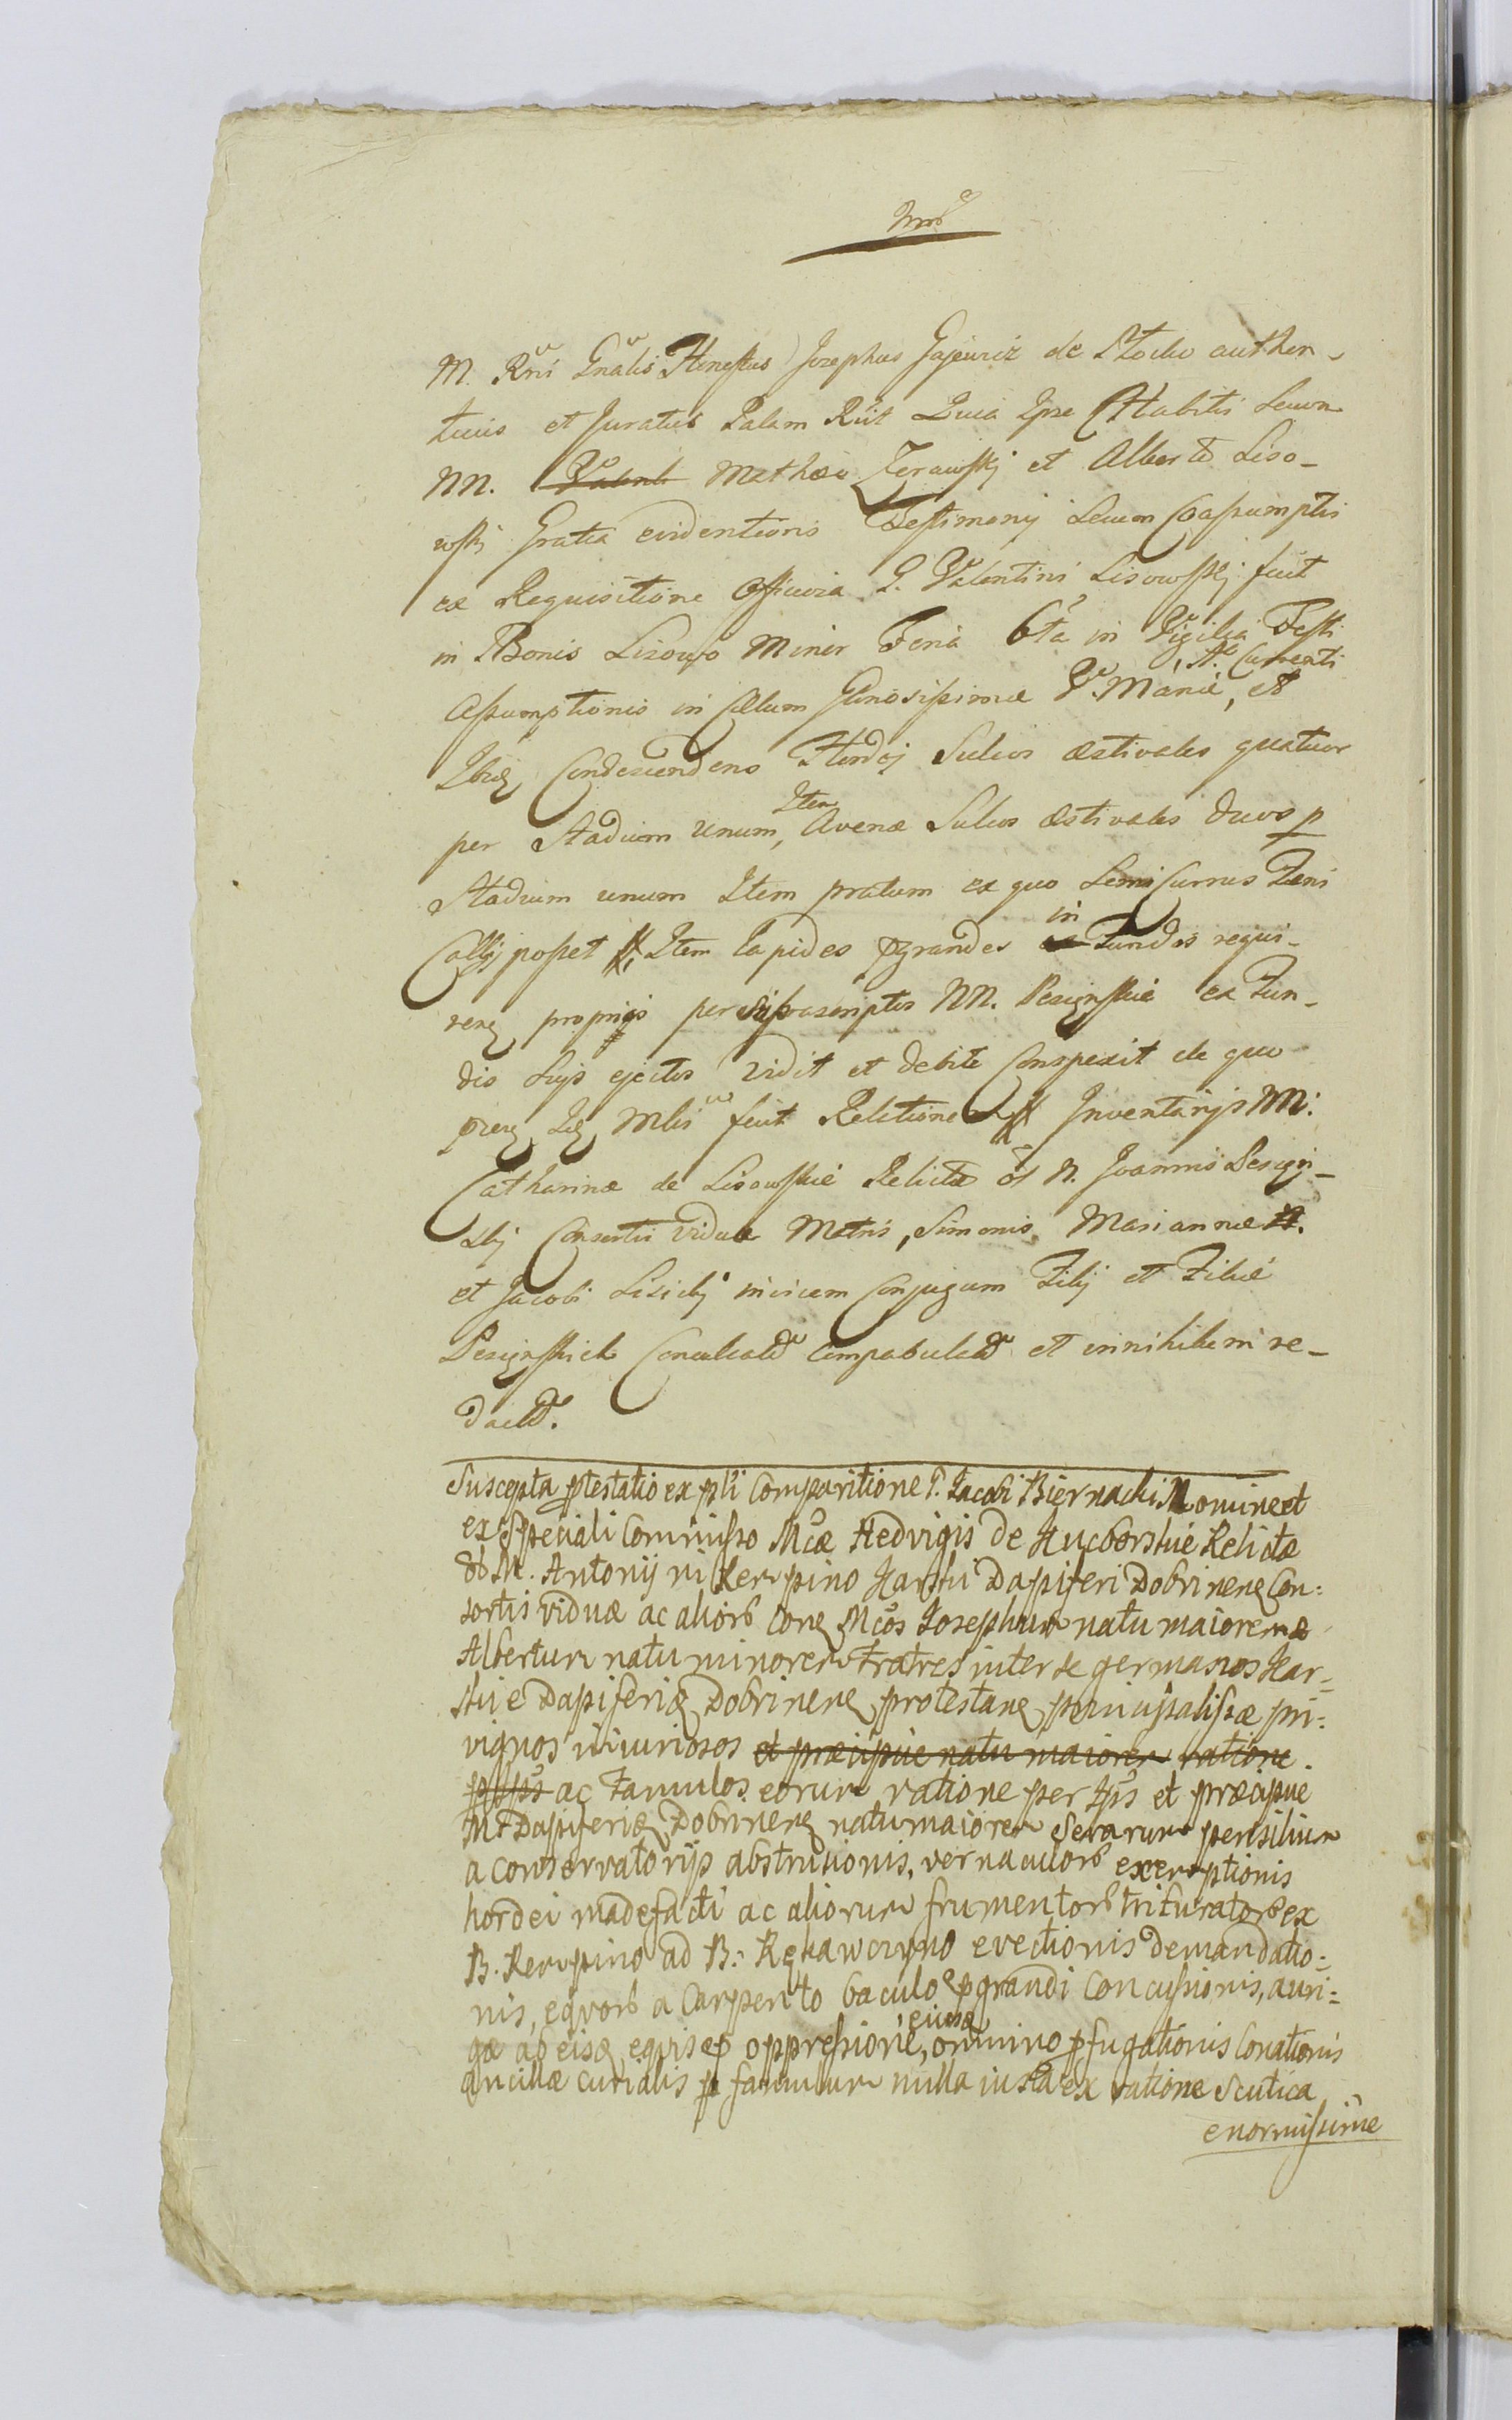 M. Rnī Gnālis Honestus Josephus Gajewicz de Płocko authen-
ticus et Juratus Palam Rūit Quia Ipse Habitis Secum
NN. Mathæo Zerawskj et Alberto Liso-
wskj Gratia evidentioris Testimonij Secum Coassumptis
ex Requisitione Officiosa G. Valentini Lisowskj fuit
in Bonis Lisowo Minor Feria 6ta in Vigilia Festi
A. Currenti
Assumptionis in Cælum Glnosissimæ V. Mariæ, et
Ibiq Condescendens Hordej Sulcos æstivales quatuor
Item
per Stadium unum, Avenæ Sulcos æstivales duos p
Stadium unum Item pratum ex quo Semi Currus Fæni
in
Colligj posset, Item Lapides pgrandes Fundos requi-
ren propriis per Suprascriptos NN. Pesignskie ex Fun-
dis Suijs ejectos Vidit et debite Conspexit de quo
fecit Relationem Inventarijs NN:
Catharinæ de Lisowskie Relictæ ol N. Joannis Pesign-
skj Consortis Viduæ Matris, Simonis, Mariannæ
et Jacobi Lisickj invicem Conjugum Filij et Filiæ
Pesignskich Conculcatō Compabulatō et in nihilum re-
dactō.
Suscepta ptestatio ex psti Comparitione G. Jacobi Biernacki Nomine et
ex speciali Commisso Mcæ Hedvigis de Hucborskie Relictæ
ol M. Antonij in Kempino Karski Dapiferi Dobrinen Con:
sortis viduæ ac aliorō Con Mcos Josephum natu maiorem &
Albertum natu minorem Fratres inter se germanos Kar=
skie Dapiferid Dobrinen protestan principalissæ pri:
vignos iniuriosos et præcipue natu maiorem ratione.
ac Famulos eorum ratione per Ipsos et præcipue
M. Dapiferid Dobrinen natu maiorem Serarum pensilium
a conservatorijs abstrusionis, vernaculorō exemptionis
hordei madefacti ac aliorum frumentorō trituratorō ex
B. Kempino ad B: Rękawczyno evectionis demandatio=
nis, eqvorō a Carpento baculo pgrandi Concussionis, auri=
eiusd
gæ ab eisd equis oppressione, omnino pfugationis Conationis
ancillæ curialis p famulum nulla iusta ex ratione Scutica
enormissime